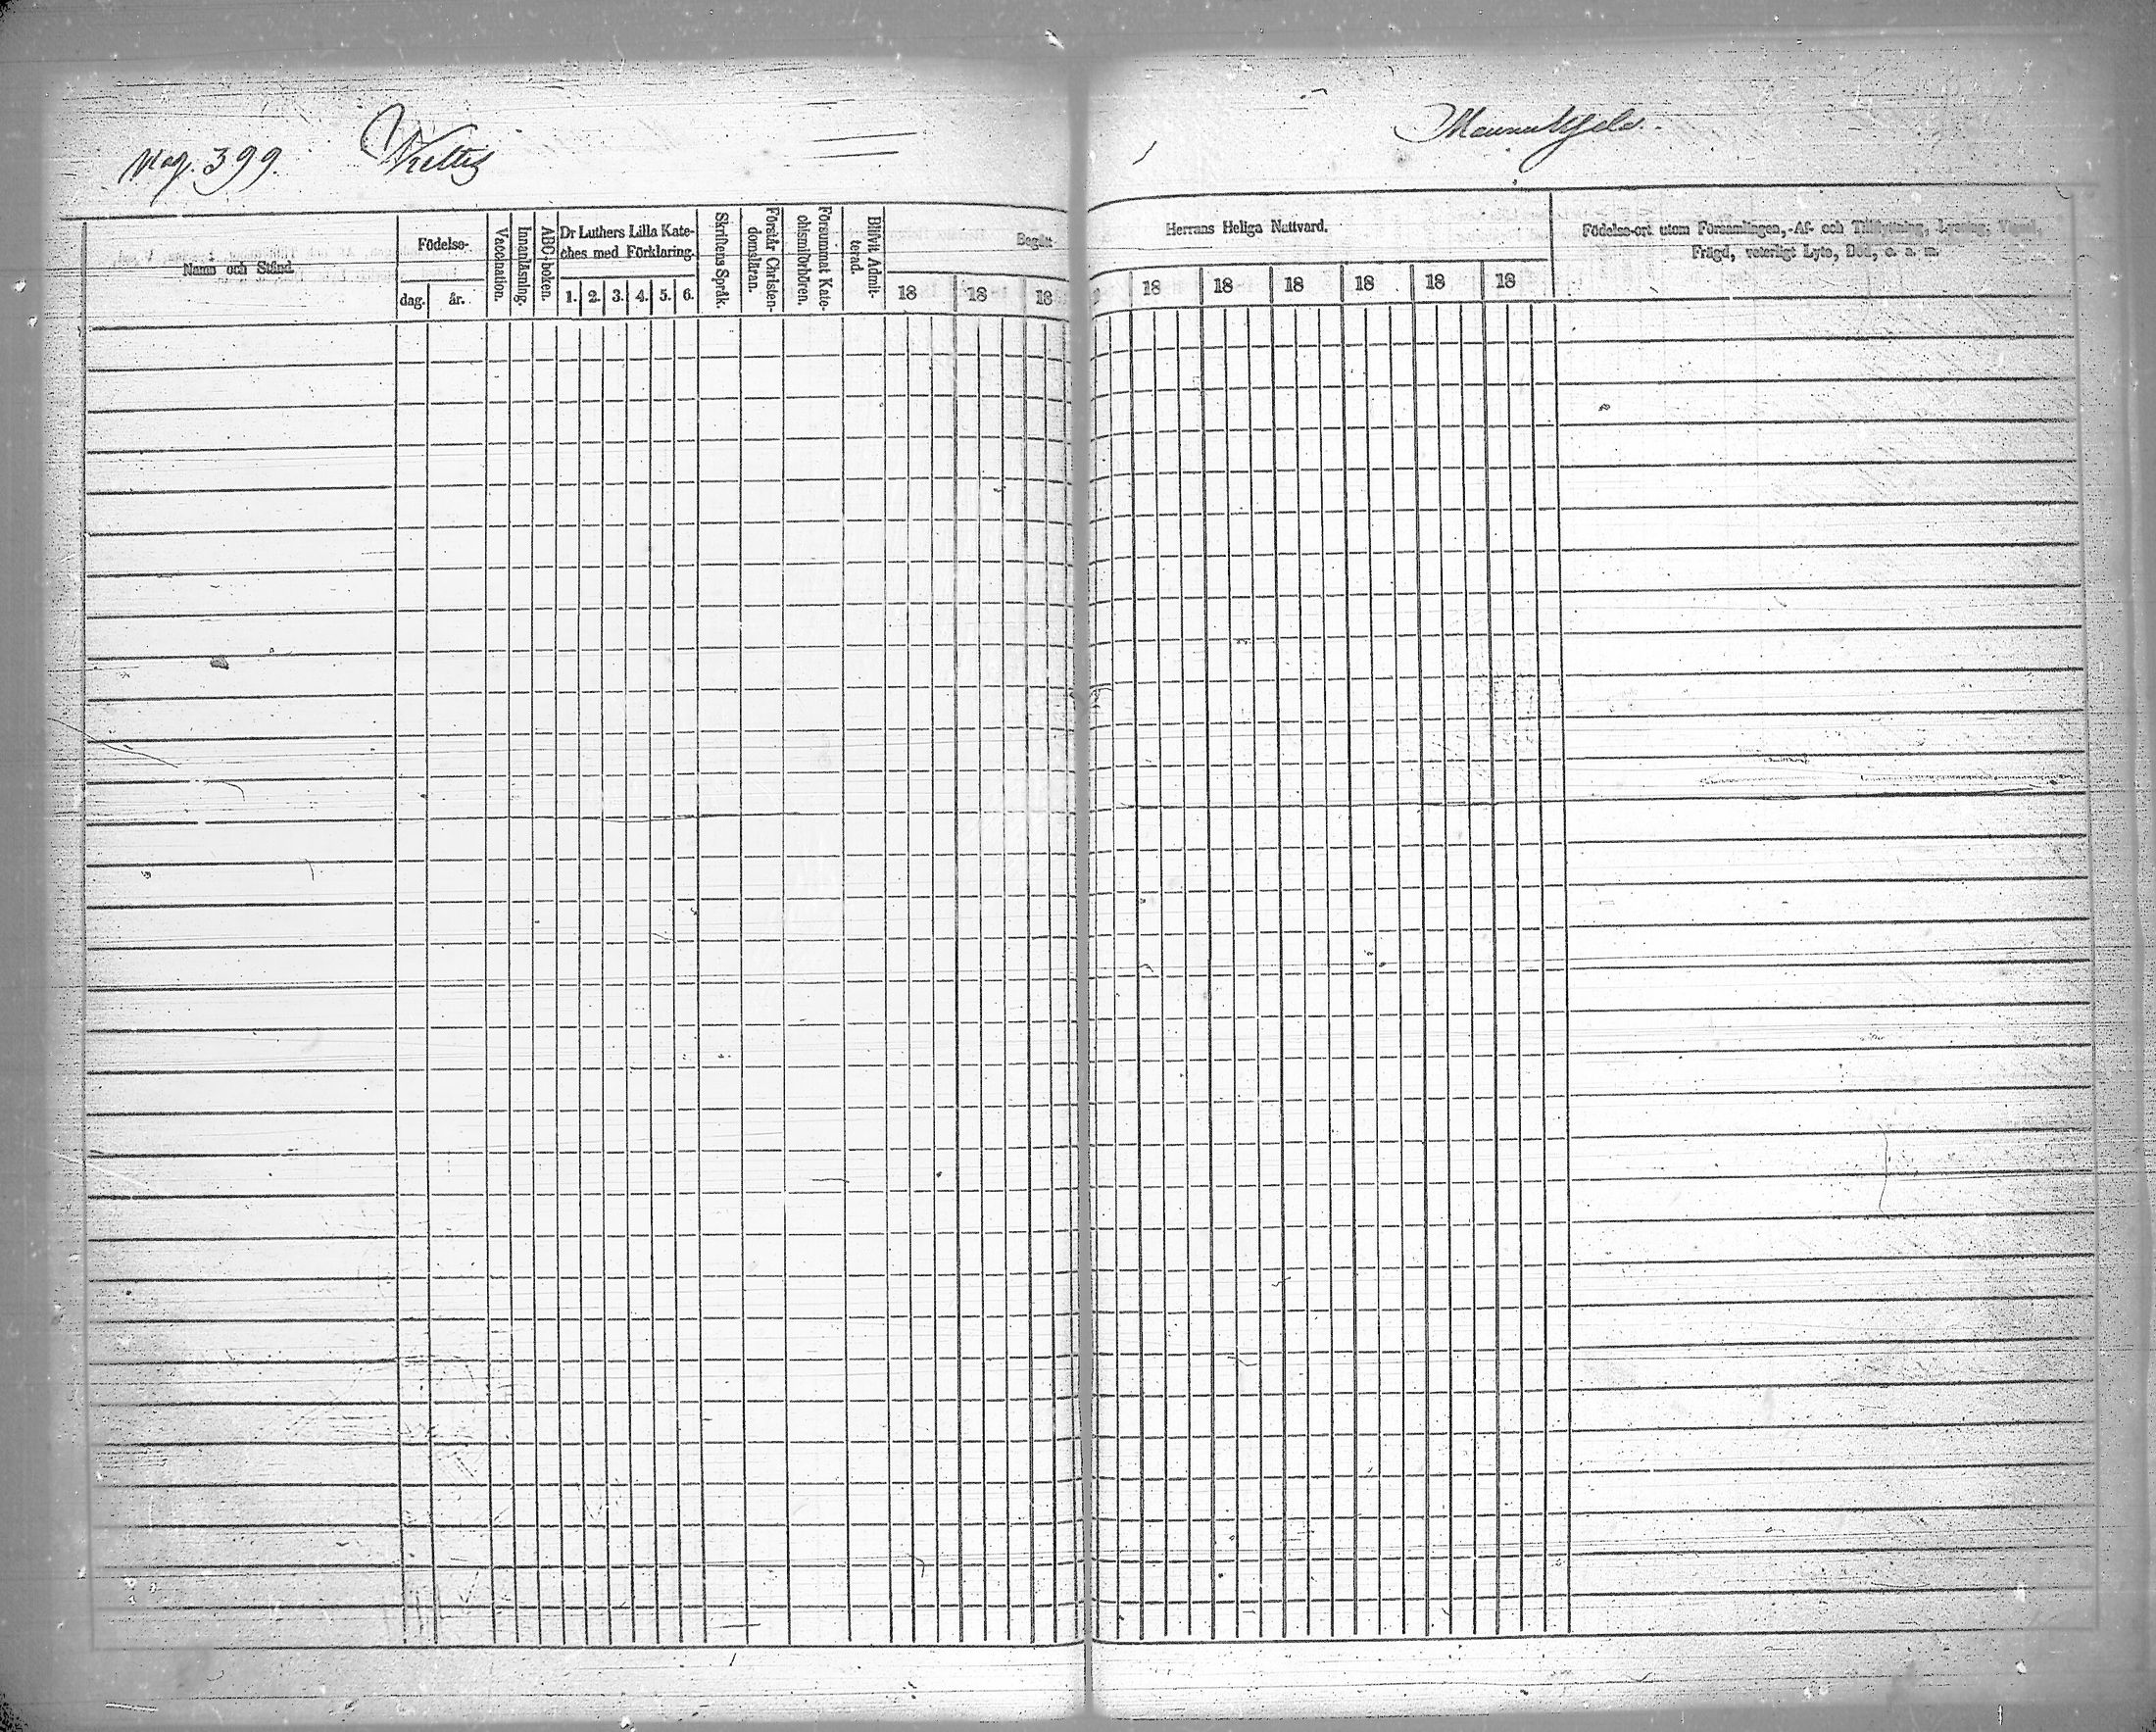 Pag. 399.
Namn och Stånd.
Födelse-
dag.
år.
Vaccination.
Innanläsning.
ABC-boken.
Dr Luthers Lilla Kate-
ches med Förklaring.
1. 2. 3. 4. 5. 6.
Skriftens Språk.
Förstår Christen-
domsläran.
Försummat Kate-
chismiförhören.
Blifvit Admit-
terad.
Begått
18 18 18
Herrans Heliga Nattvard.
18 18 18 18 18 18
Födelse-ort utom Församlingen, Af- och Tillflyttning, Lysning, Vigsel,
Frägd, veterligt Lyte, Död, o. s. m.